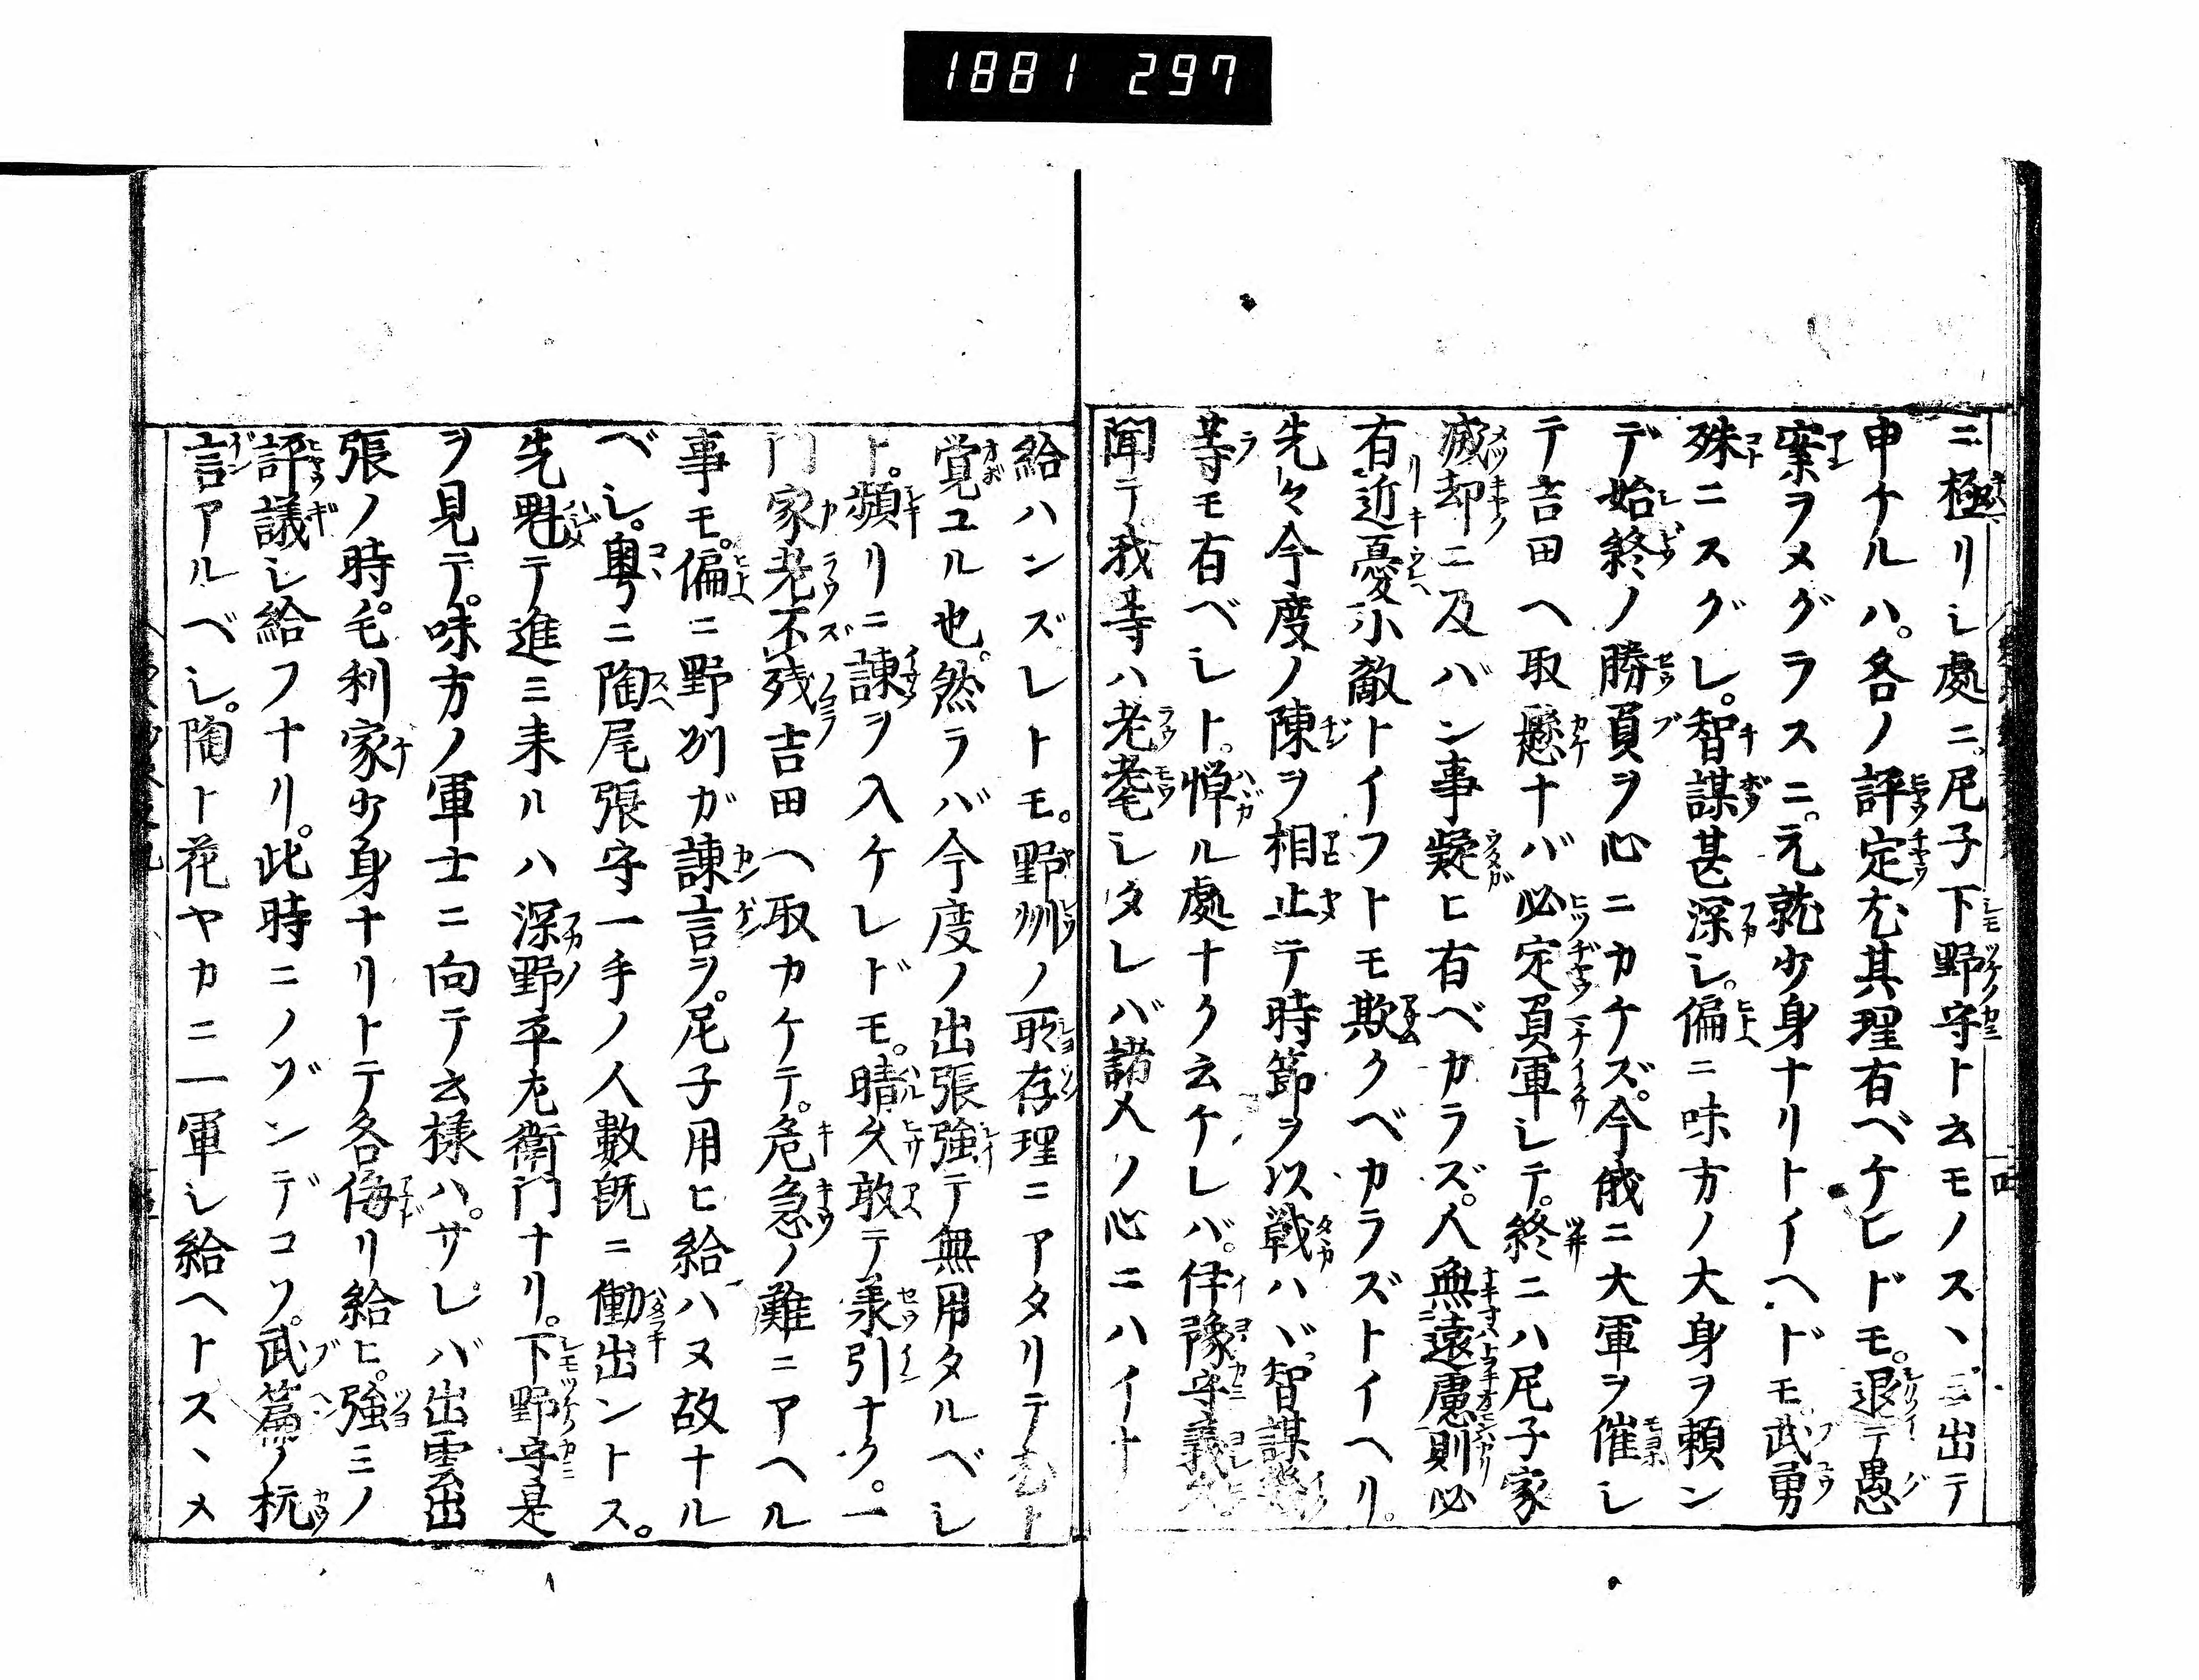 1881 297
ニ極リシ處ニ。尼子下野守ト云モノスヽミ出テ
申ケルハ。各ノ評定尤其理有ベケレドモ。退テ愚
案ヲメグラスニ。元就少身ナリトイヘドモ武勇
殊ニスグレ。智謀甚深シ。偏ニ味方ノ大身ヲ頼ン
デ始終ノ勝負ヲ心ニカケズ。今俄ニ大軍ヲ催シ
テ吉田ヘ取懸ナバ必定負軍シテ。終ニハ尼子家
滅却ニ及バン事疑ヒ有ベカラズ。人無遠慮則必
有近憂小敵トイフトモ欺クベカラズトイヘリ。
先々今度ノ陳ヲ相止テ時節ヲ以戦ハヾ智謀
等モ有ベシト。憚ル處ナク云ケレバ。伊豫守義久
聞テ我等ハ老耄シタレバ諸人ノ心ニハイナ
給ハンズレトモ。野州ノ所存理ニアタリテ
覚ユル也。然ラバ今度ノ出張強テ無用タルベシ
ト。頻リニ諫ヲ入ケレドモ。晴久敢テ承引ナク。一
門家老不残吉田ヘ取カケテ。危急ノ難ニアヘル
事モ。偏ニ野州ガ諫言ヲ。尼子用ヒ給ハヌ故ナル
ベシ。粤ニ陶尾張守一手ノ人數既ニ働出ントス。
先魁テ進ミ来ルハ深野平左衛門ナリ。下野守是
ヲ見テ。味方ノ軍士ニ向テ云様ハ。サレバ出雲出
張ノ時。毛利家少身ナリトテ各侮リ給ヒ。強ミノ
評議シ給フナリ。此時ニノゾンデコソ。武篇ノ抗
言アルベシ。陶ト花ヤカニ一軍シ給ヘトスヽメ